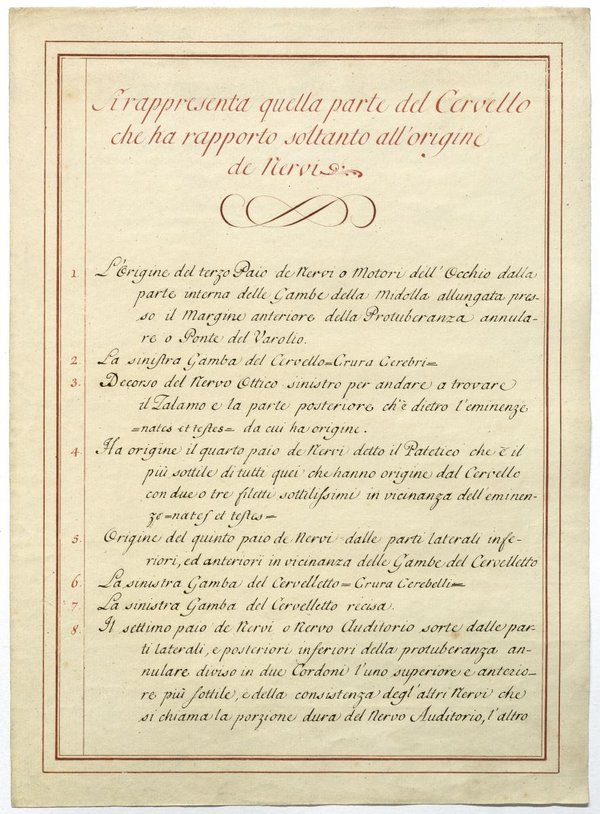 Si rappresenta quella parte del Cervello
che ha rapporto soltanto all'origine
de Nervi
1. L'Origine del terzo Paio de Nervi o Motori dell'Occhio dalla
parte interna delle Gambe della Midolla allungata pres-
so il Margine anteriore della Protuberanza annula-
re o Ponte del Varolio.
2. La siniſtra Gamba del Cervello=Crura Cerebri=
3. Decorso del Nervo Ottico sinistro per andare a trovare
il Talamo e la parte posteriore ch'è dietro l'eminenze
=nates et teſtes= da cui ha origine.
4. Ha origine il quarto paio de Nervi detto il Patetico che è il
più sottile di tutti quei che hanno origine dal Cervello
con due o tre filetti sottiliſsimi in vicinanza dell'eminen-
ze=nateſ et teſtes=
5. Origine del quinto paio de Nervi dalle parti laterali infe-
riori, ed anteriori in vicinanza delle Gambe del Cervelletto
6. La sinistra Gamba del Cervelletto=Crura Cerebelli=
7. La sinistra Gamba del Cervelletto recisa.
8. Il settimo paio de Nervi o Nervo Auditorio sorte dalle par-
ti laterali, e posteriori inferiori della protuberanza an-
nulare diviso in due Cordoni l'uno superiore e anterio-
re più ſottile, e della consistenza degl'altri Nervi che
si chiama la porzione dura del Nervo Auditorio, l'altro